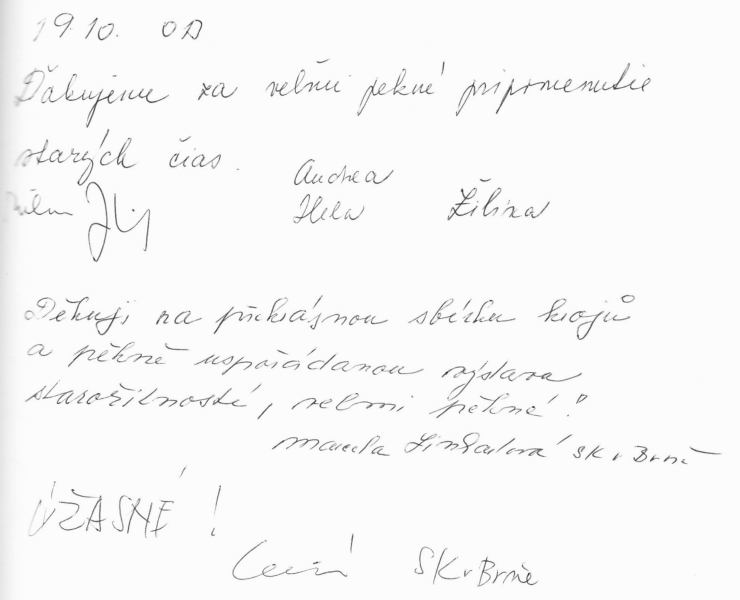 19.10. OD
Ďakujeme za veľmi pekné pripomenutie
starých čias.
Andrea
Hela Žilina
Děkuji za překrásnou sbírku krojů
a pěkně uspořádanou výstava
starožitností, velmi pěkné!
SK v Brně
ÚŽASNÉ!
SK v Brně